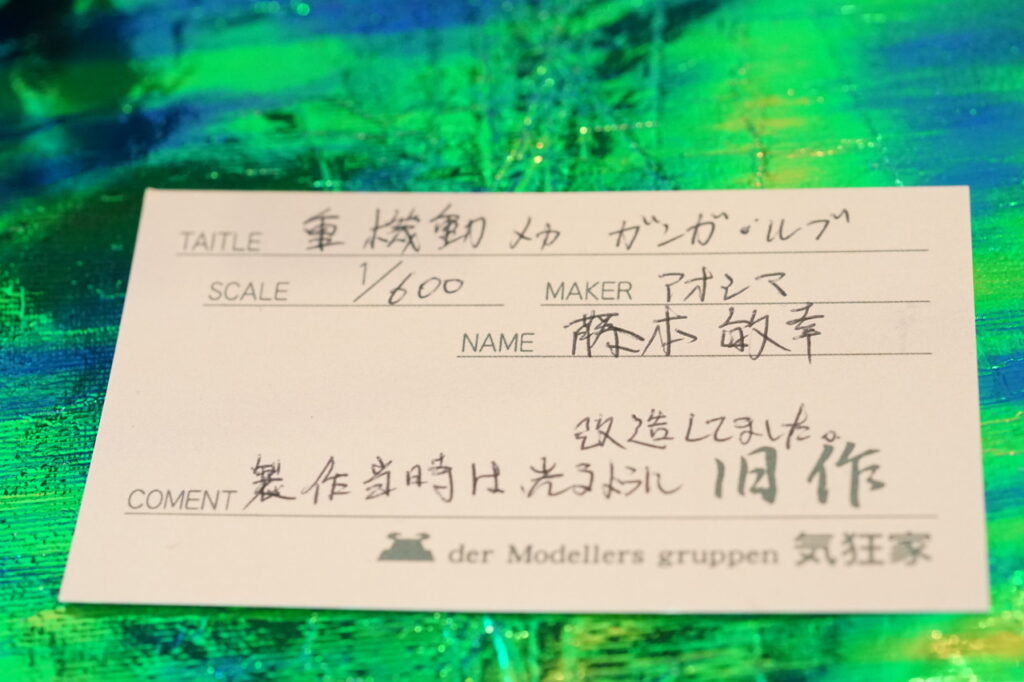 TAITLE 重機動メカ ガンガ・ルブ
SCALE 1/600 MAKER アオシマ
NAME 藤本敏幸
改造してました。
COMENT 製作当時は、光るように 旧作
der Modellers gruppen 気狂家